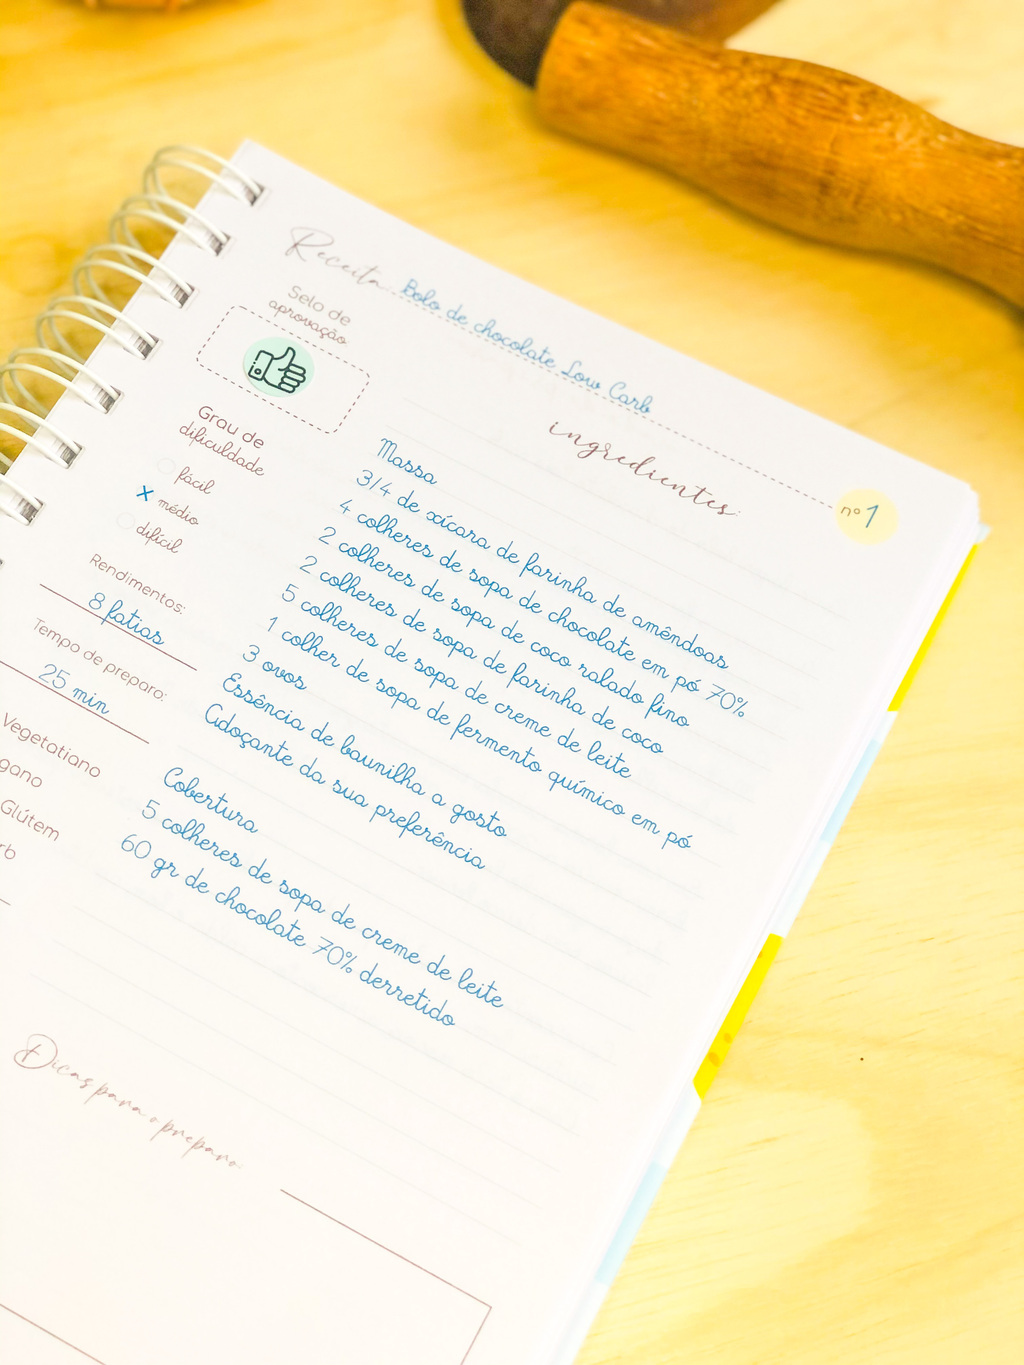 Receita: Bolo de chocolate Low Carb
nº 1
Selo de
aprovação
Grau de
dificuldade
fácil
X médio
difícil
Rendimentos:
8 fatias
Tempo de preparo:
25 min
Vegetatiano
gano
Glútem
rb
ingredientes:
Massa
3/4 de xícara de farinha de amêndoas
4 colheres de sopa de chocolate em pó 70%
2 colheres de sopa de coco ralado fino
2 colheres de sopa de farinha de coco
5 colheres de sopa de creme de leite
1 colher de sopa de fermento químico em pó
3 ovos
Essência de baunilha a gosto
Adoçante da sua preferência
Cobertura
5 colheres de sopa de creme de leite
60 gr de chocolate 70% derretido
Dicas para o preparo: